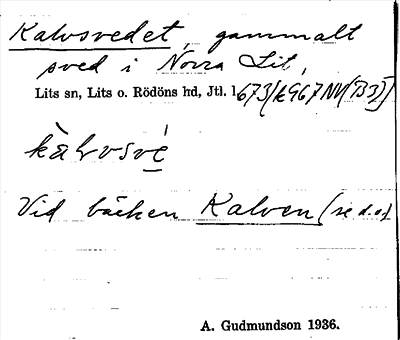 Kalvsvedet, gammalt
sved i Norra Lit,
Lits sn, Lits o. Rödöns hd, Jtl. l
kàlvsvé
Vid bäcken Kalven (se d.o.)
A. Gudmundson 1936.